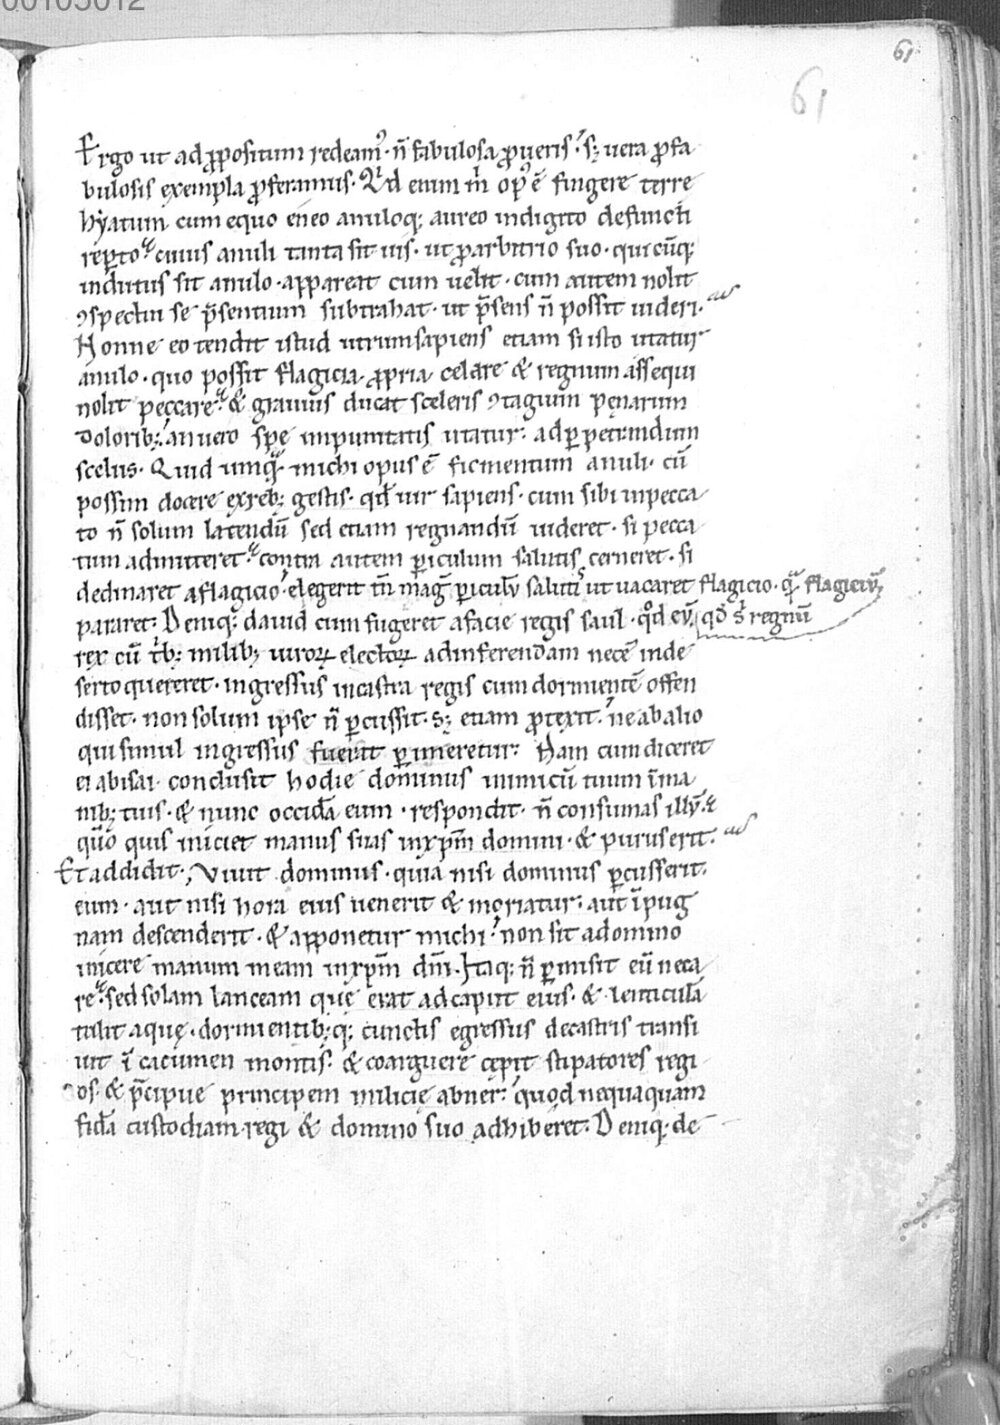 00105012
61
61
Ergo ut ad ꝓpositum redeamꝰ· n̄ fabulosa ꝓ ueris· sꝫ uera ꝓ fa
bulosis exempla ꝓferamus· Qͥd enim m̄ opꝰ ē fingere terre
hyatum cum equo eneo anuloqꝫ aureo indigito defuncti
reꝑto· cuius anuli tanta sit uis· ut ꝓ arbitrio suo· qui cūqꝫ
indutus sit anulo· appareat cum uelit· cum autem nolit
ꝯspectui se p̄sentium subtrahat· ut p̄sens n̄ possit uideri·
Nonne eo tendit istud utrum sapiens etiam si isto utatur
anulo· quo possit flagicia ꝓpria celare & regnum assequi
nolit peccare· & grauius ducat sceleris ꝯtagium pęnarum
doloribꝫ· an uero spę impunitatis utatur· ad ꝑpetrandum
scelus· Quid umqͣ michi opus ē ficmentum anuli· cū
possim docere ex rebꝫ gestis· qd̄ uir sapiens· cum sibi in pecca
to n̄ solum latendū sed etiam regnandū uideret· si pecca
tum admitteret· contra autem ꝑiculum salutis cerneret· si
declinaret a flagicio· elegerit tn̄ mag̃ ꝑiculū salutis ut uacaret flagicio· qͣ flagiciū
pararet· Deniqꝫ dauid cum fugeret a facie regis saul· qd̄ eū qd̄ s᷒ regnū
rex cū tͥbꝫ milibꝫ uiroꝝ electoꝝ ad inferendam necē in de
serto quereret· ingressus in castra regis cum dormientē offen
disset· non solum ipse n̄ ꝑcussit· sꝫ etiam ꝓtexit· ne ab alio
qui simul ingressus fuerat ꝑimeretur· Nam cum diceret
ei abisai· conclusit hodie dominus inimicū tuum ī ma
nibꝫ tuis· & nunc occidā eum· respondit· n̄ consumas illū·
qm̄ quis iniciet manus suas in xp̄m domini· & purus erit·
Et addidit· Viuit dominus· quia nisi dominus ꝑcusserit
eum· aut nisi hora eius uenerit & moriatur· aut ī pug
nam descenderit· & apponetur michi· non sit a domino
inicere manum meam in xp̄m dn̄i· Itaqꝫ n̄ ꝑmisit eū neca
re· sed solam lanceam quę erat ad caput eius· & lenticulā
tulit aquę· dormientibꝫ qꝫ cunctis egressus de castris transi
uit ī cacumen montis· & coarguere cępit stipatores regi
os· & p̄cipue principem milicię abner· quod nequaquam
fidā custodiam regi & domino suo adhiberet· Deniqꝫ de